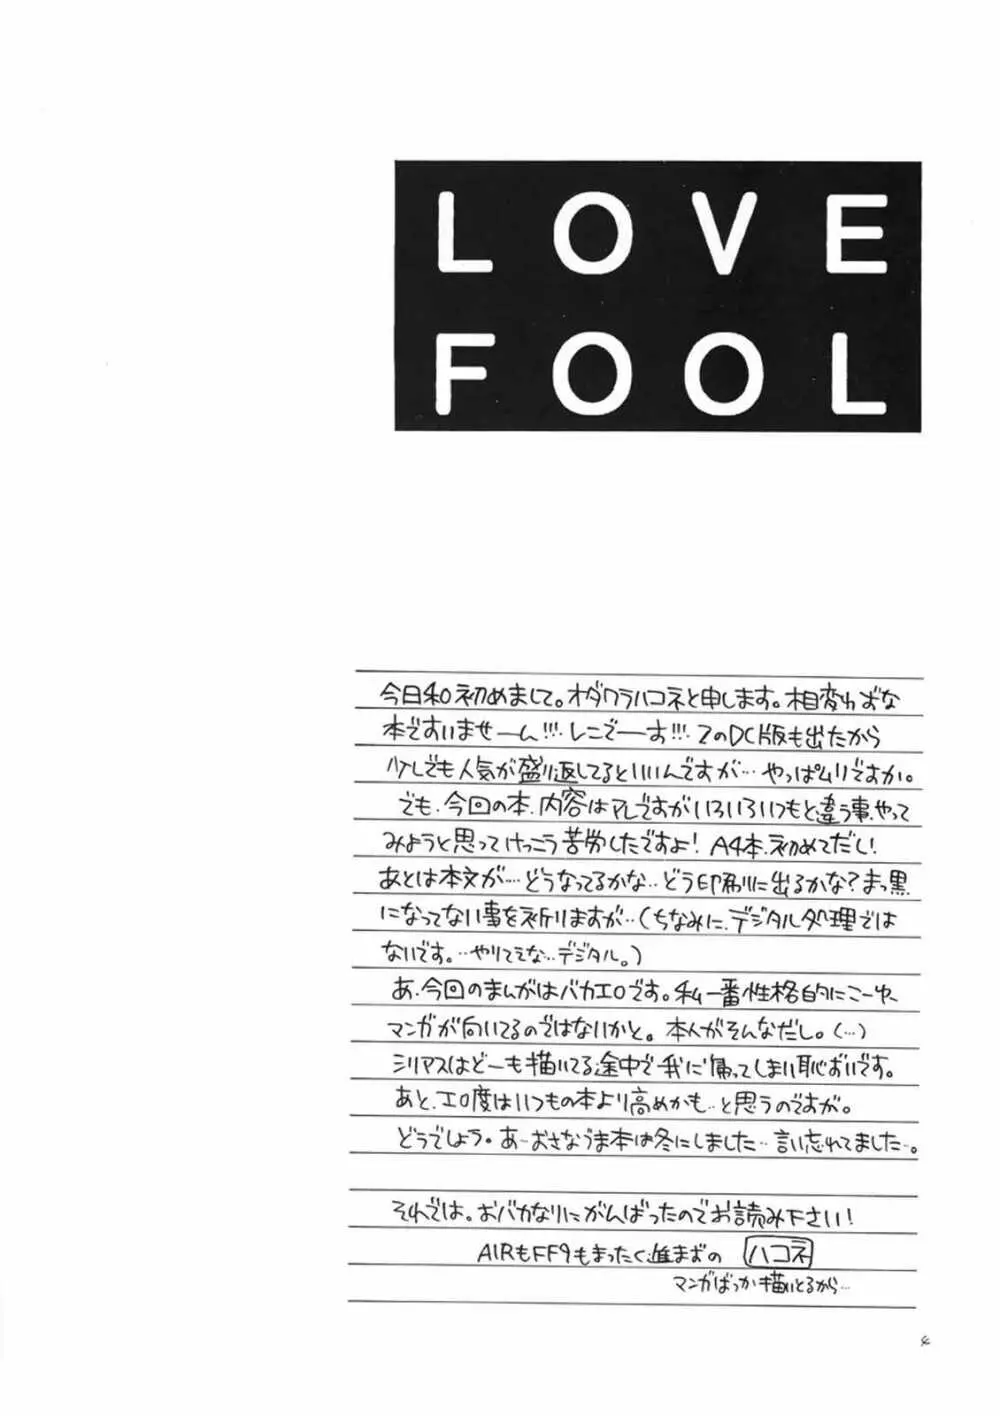 LOVE
FOOL
今日和。初めまして。オダワラハコネと申します。相変わらずな
本ですいませーん!!!レニでーす!!!2のDC版も出たから
少しでも人気が盛り返してるといいんですが…やっぱムリですか。
でも、今回の本、内容はアレですがいろいろいつもと違う事、やって
みようと思ってけっこう苦労したですよ!A4本、初めてだし!
あとは本文が…どうなってるかな…どう印刷に出るかな?まっ黒
になってない事を祈りますが…(ちなみに、デジタル処理では
ないです。…やりてえな…デジタル。)
あ、今回のまんがはバカエロです。私一番性格的にこーゆー
マンガが向いてるのではないかと。本人がそんなだし。(…)
シリアスはどーも描いてる途中で我に帰ってしまい恥ずいです。
あと、エロ度はいつもの本より高めかも…と思うのですが。
どうでしょう。あーおさなうま本は冬にしました…言い忘れてました…。
それでは。おバカなりにがんばったのでお読み下さい!
AIRもFF9もまったく進まずの ハコネ
マンガばっか描いとるから…
4